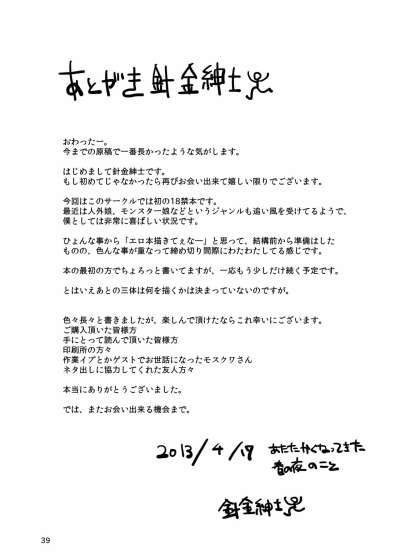 あとがき 針金紳士
おわったー。
今までの原稿で一番長かったような気がします。
はじめまして針金紳士です。
もし初めてじゃなかったら再びお会い出来て嬉しい限りでございます。
今回はこのサークルでは初の18禁本です。
最近は人外娘、モンスター娘などというジャンルも追い風を受けてるようで、
僕としては非常に喜ばしい状況です。
ひょんな事から「エロ本描きてぇなー」と思って、結構前から準備はした
ものの、色んな事が重なって締め切り間際にわたわたしてる感じです。
本の最初の方でちょろっと書いてますが、一応もう少しだけ続く予定です。
とはいえあとの三体は何を描くかは決まっていないのですが。
色々長々と書きましたが、楽しんで頂けたならこれ幸いにございます。
ご購入頂いた皆様方
手にとって読んで頂いた皆様方
印刷所の方々
作業イプとかゲストでお世話になったモスクワさん
ネタ出しに協力してくれた友人方々
本当にありがとうございました。
では、またお会い出来る機会まで。
2013/4/19 あたたかくなってきた
春の夜のこと
針金紳士
39